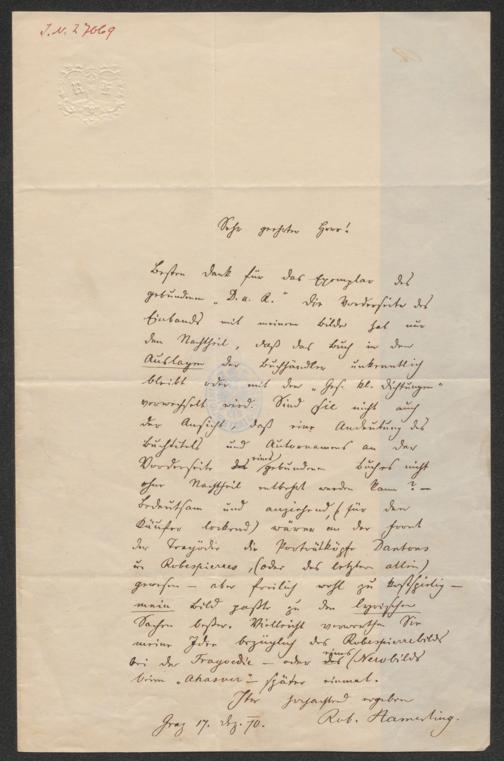 J.N. 27669
Sehr geehrter Herr!
Besten Dank für das Exemplar des
gebundenen „D. u. R." Die Vorderseite des
Einbands mit meinem Bilde hat nur
den Nachtheil, daß das Buch in den
Auslagen der Buchhändler unkenntlich
bleibt oder mit den „Ges. kl. Dichtungen"
verwechselt wird. Sind Sie nicht auch
der Ansicht, daß eine Andeutung des
Buchtitels und Autornamens an der
Vorderseite eines gebundenen Buches nicht
ohne Nachtheil entbehrt werden kann? —
Bedeutsam und anziehend, (für den
Käufer lockend) wären an der Front
der Tragödie die Porträtköpfe Dantons
u. Robespierres, (oder des letztern allein)
gewesen — aber freilich wohl zu kostspielig —
mein Bild paßte zu den lyrischen
Sachen besser. Vielleicht verwerthen Sie
meine Idee bezüglich des Robespierrebilds
bei der Tragoedie — oder eines (Nerobilds
beim „Ahasver" — später einmal.
Ihr hochachtend ergebener
Graz 17. Dez. 70. Rob. Hamerling.